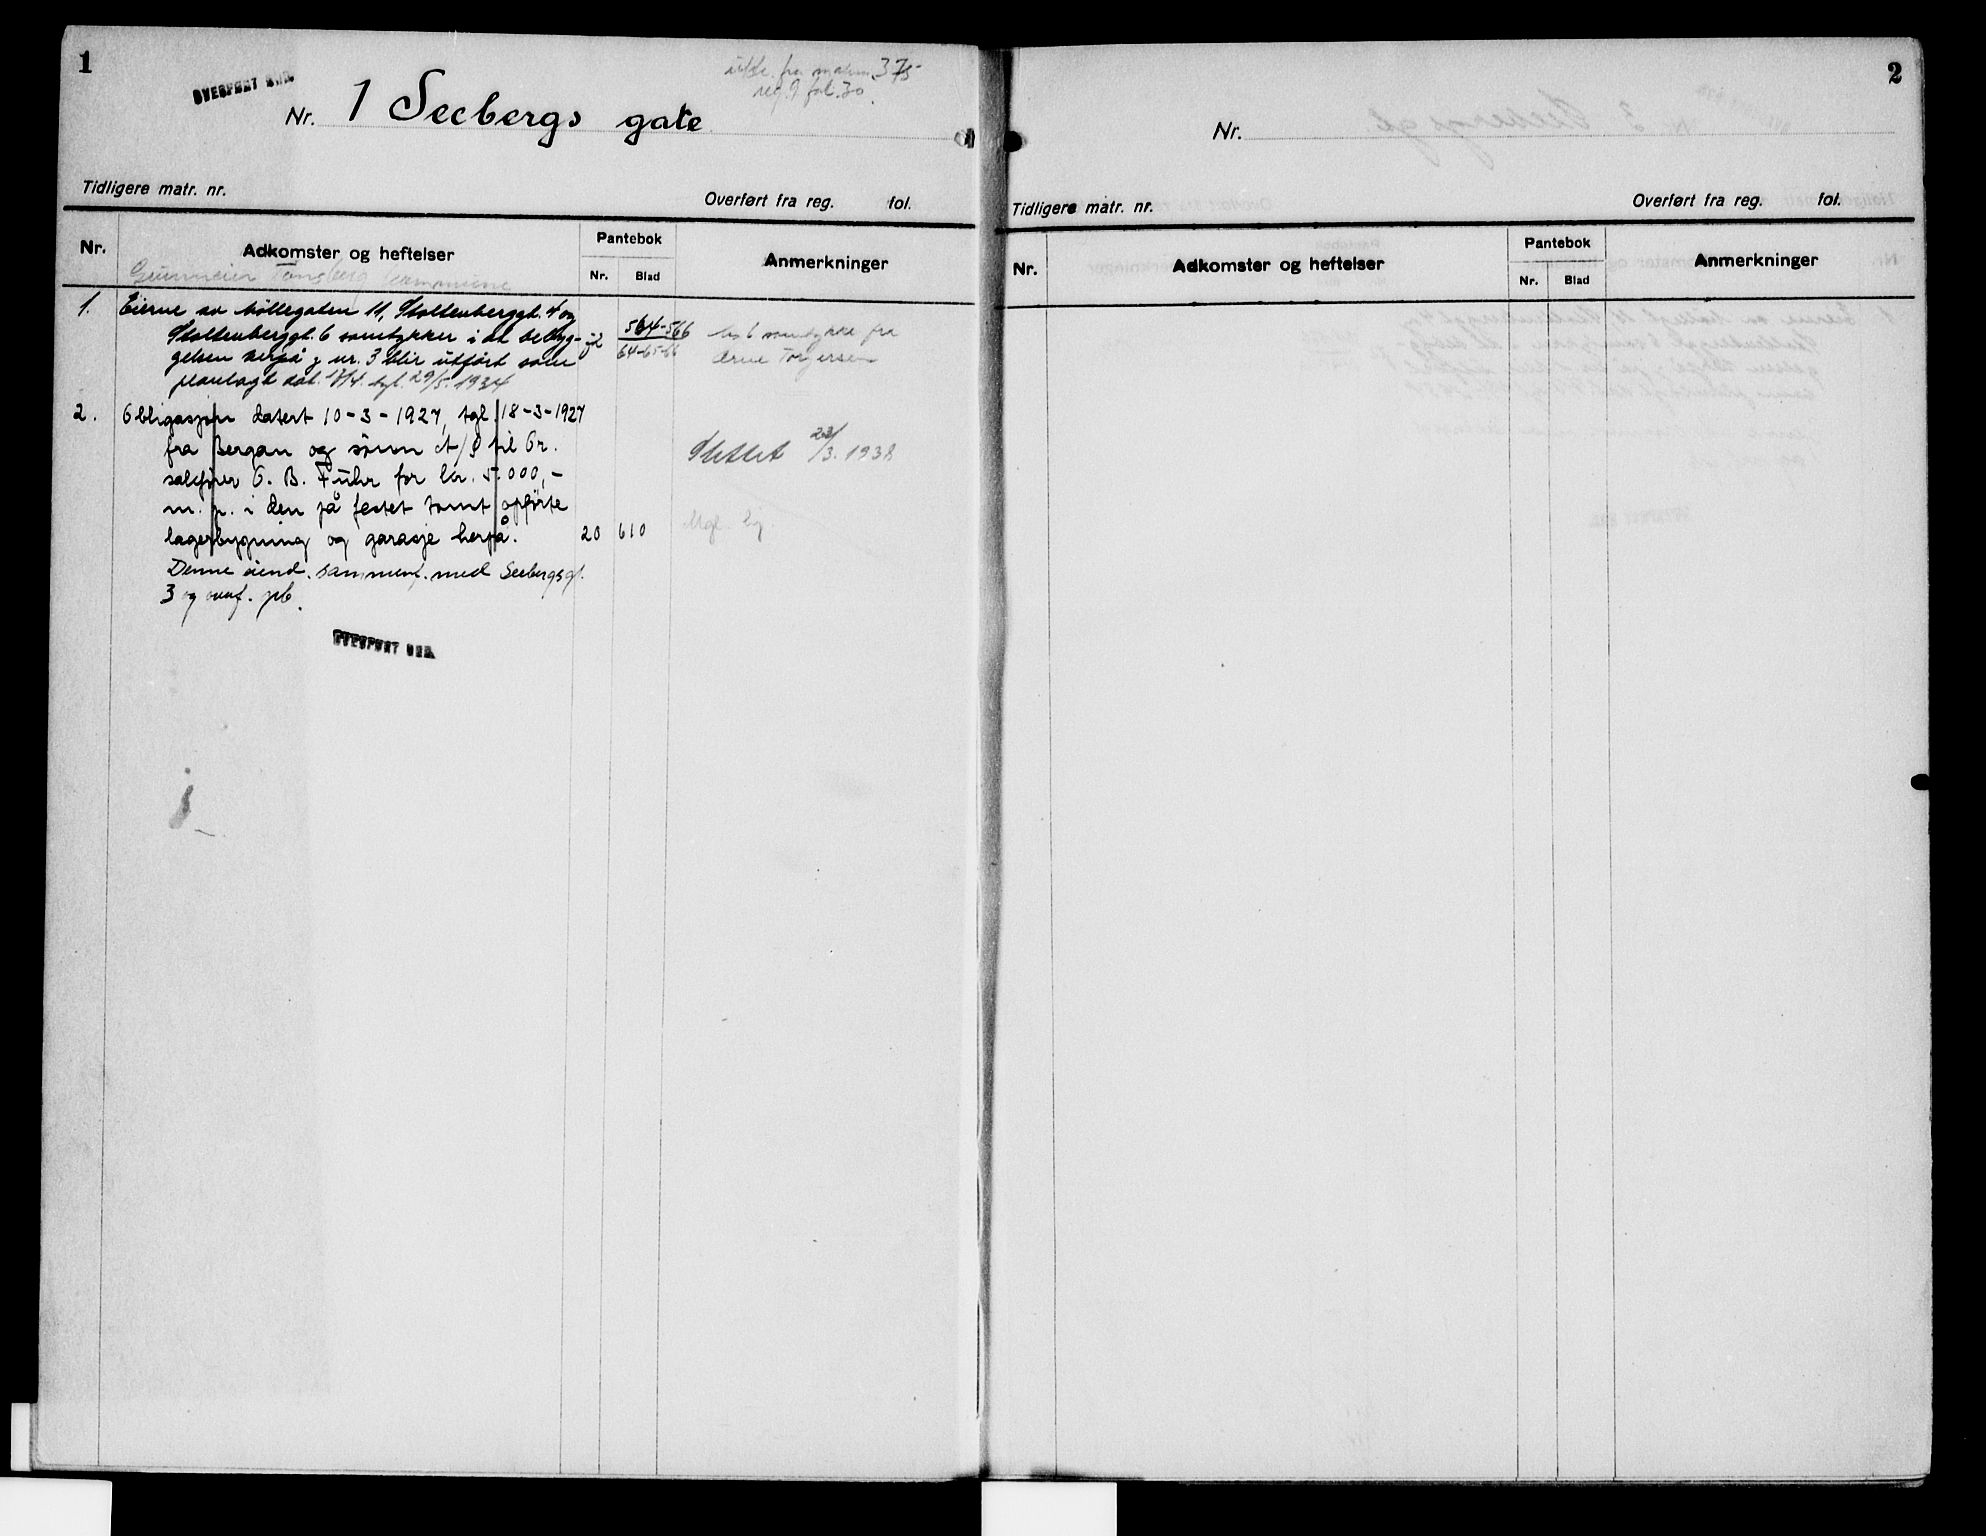 1
OVERFØRT EDB.
utsk. fra matr. 375
reg. 9 fol. 30.
Nr. 1 Seebergs gate
Tidligere matr. nr.
Overført fra reg. fol.
Nr.
Adkomster og heftelser
Pantebok
Nr. Blad
Anmerkninger
Grunneier Tønsberg kommune
1. Eierne av Møllegaten 11, Stoltenberggt. 4 og
Stoltenberggt. 6 samtykker i at bebyg-
gelsen herpå og nr. 3 blir utført som
planlagt dat. 17/4. tgl. 29/5. 1934
564-566
64-65-66
samtykke fra
Torjersen
2. Obligasjon datert 10-3-1927, tgl. 18-3-1927
fra Bergan og sønn A/S til Or.
saksfører O. B. Fuhr for kr. 5.000,-
m. p. i den på festet tomt opførte
lagerbygning og garasje herpå.
20 610
Slettet 23/3. 1938
Mgl. bg.
Denne eiend. sammenf. med Seebergsgt.
3 og overf. pb.
OVERFØRT EDB.
2
Nr.
Tidligere matr. nr.
Overført fra reg. fol.
Nr.
Adkomster og heftelser
Pantebok
Nr. Blad
Anmerkninger